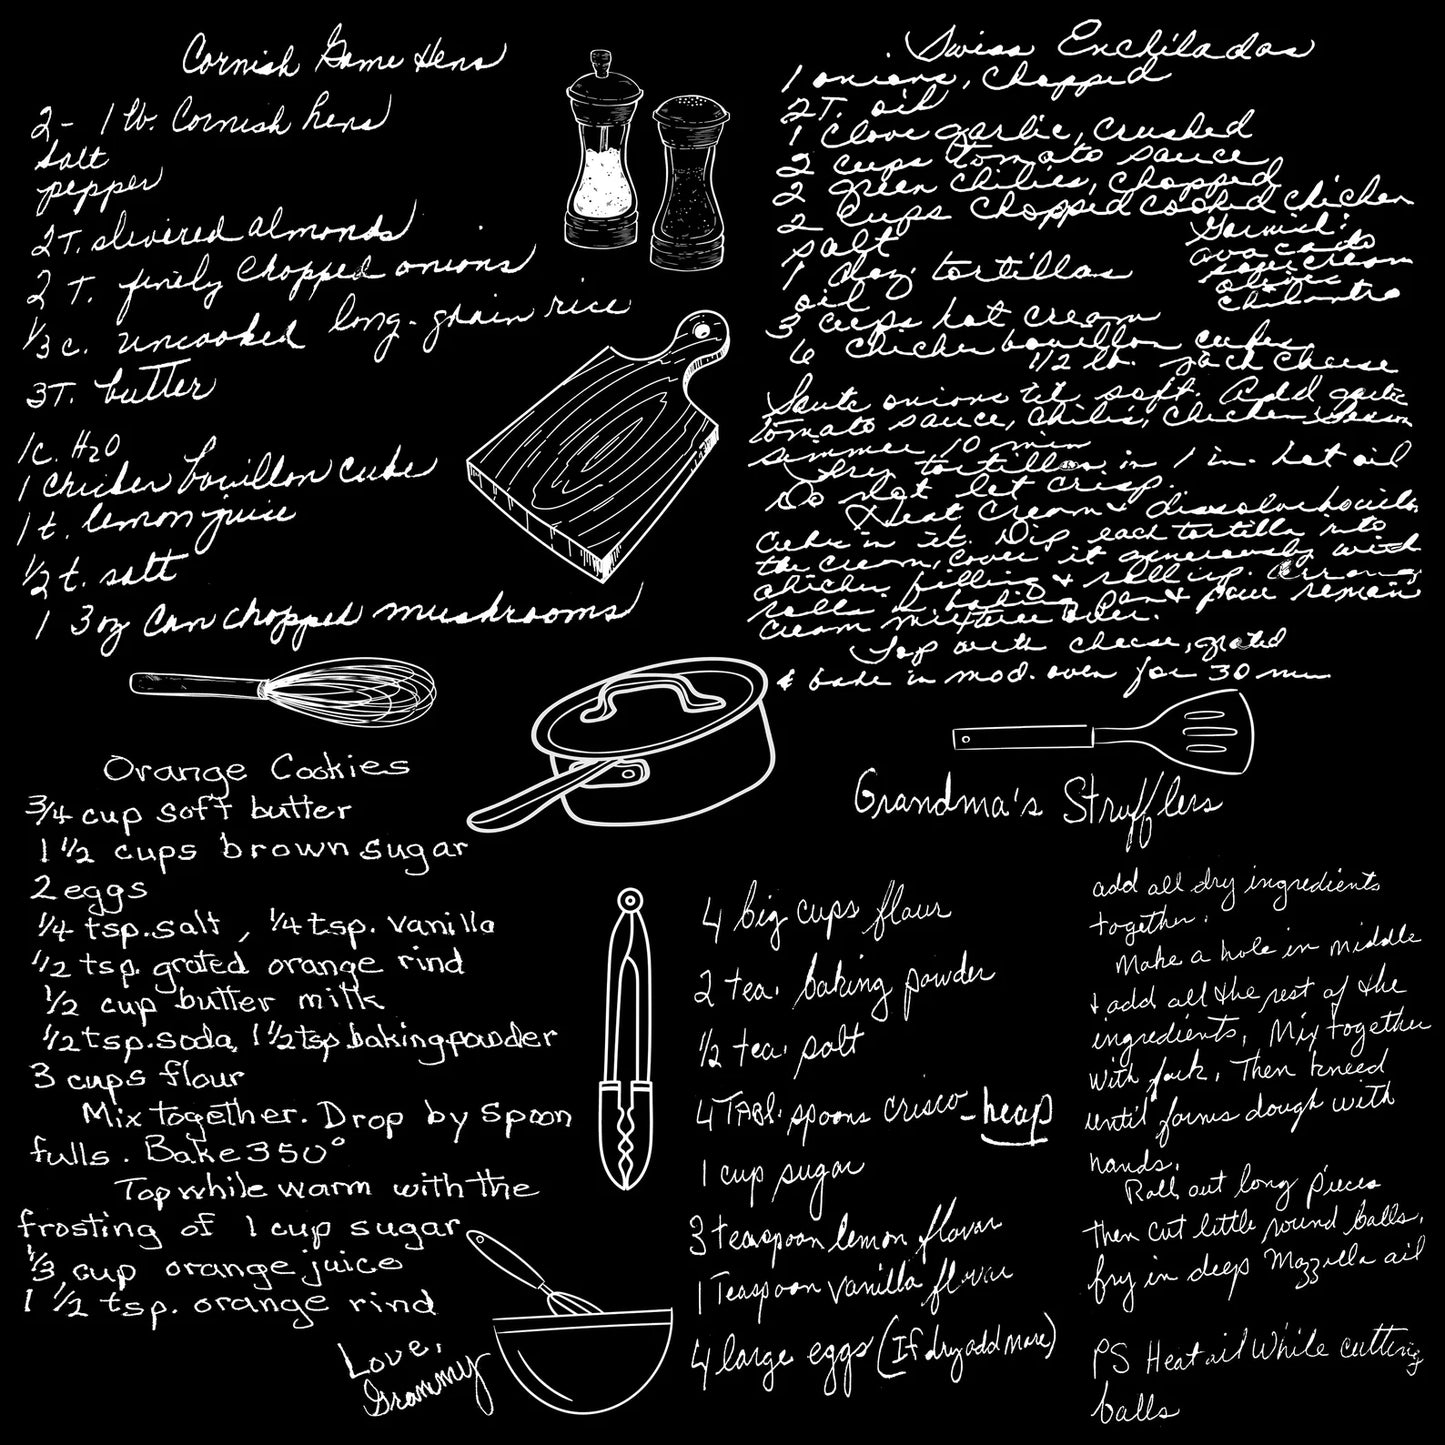 Cornish Game Hens
2- 1 lb. Cornish hens
Salt
pepper
2T. slivered almonds
2 T. finely chopped onions
1/3 c. uncooked long-grain rice
3T. butter
1c. H2O
1 chicken bouillon cube
1t. lemon juise
1/2 t. salt
1 3oz can chopped mushrooms
Swiss Enchiladas
1 onions, chopped
2T. oil
1 clove garlic, crushed
2 cups tomato sauce
2 green chilies, chopped
2 cups chopped cooked chicken
salt
1 doz. tortillas
oil
3 cups hot cream
6 chicken bouillon cubes
1/2 lb. jack cheese
Garnish:
avacado
sour cream
olives
chilantro
Saute onions til soft. Add garlic
tomato sauce, chilis, chicken. Season
simmer 10 min
Fry tortillas in 1 in. hot oil
Do not let crisp.
Heat cream & dissolve bouillon
cubes in it. Dip each tortilla into
the cream, cover it generously with
chicken filling & roll up. Arrang
rolls in baking pan & pour remain
cream mixture over.
Top with cheese, grated
& bake in mod. oven for 30 min
Orange Cookies
3/4 cup soft butter
1 1/2 cups brown sugar
2 eggs
1/4 tsp. salt, 1/4 tsp. vanilla
1/2 tsp. grated orange rind
1/2 cup butter milk
1/2 tsp. soda, 1 1/2 tsp baking powder
3 cups flour
Mix together. Drop by spoon
fulls. Bake 350°
Top while warm with the
frosting of 1 cup sugar
1/3 cup orange juice
1 1/2 tsp. orange rind
Love,
Grammy
Grandma's Strufflers
4 big cups flour
2 tea. baking powder
1/2 tea. salt
4 TABL. spoons crisco - heap
1 cup sugar
3 teaspoon lemon flavar
1 Teaspoon vanilla flavar
4 large eggs (If dry add more)
add all dry ingredients
together.
Make a hole in middle
& add all the rest of the
ingredients, Mix together
with fork, Then kneed
until forms dough with
hands.
Roll out long pieces
then cut little round balls.
fry in deep Mazzilla oil
PS Heat oil While cutting
balls